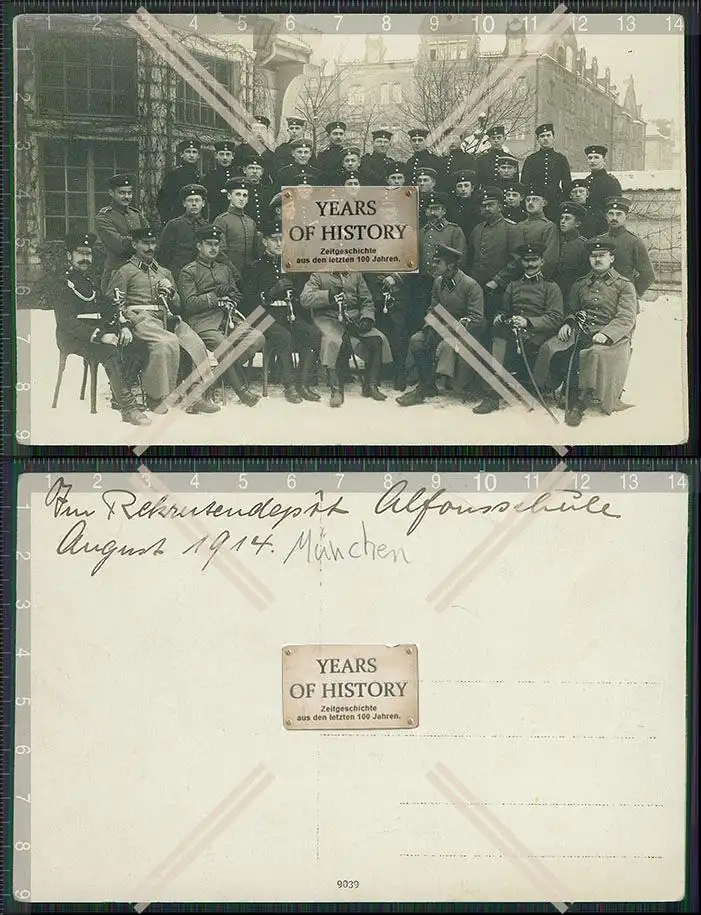 1 2 3 4 5 6 7 8 9 10 11 12 13 14
1
2
3
4
5
6
7
8
9
YEARS
OF HISTORY
Zeitgeschichte
aus den letzten 100 Jahren.
1 2 3 4 5 6 7 8 9 10 11 12 13 14
Im Rekrutendepôt Alfonsschule
August 1914. München
2
3
4
5
6
7
8
9
YEARS
OF HISTORY
Zeitgeschichte
aus den letzten 100 Jahren.
9039